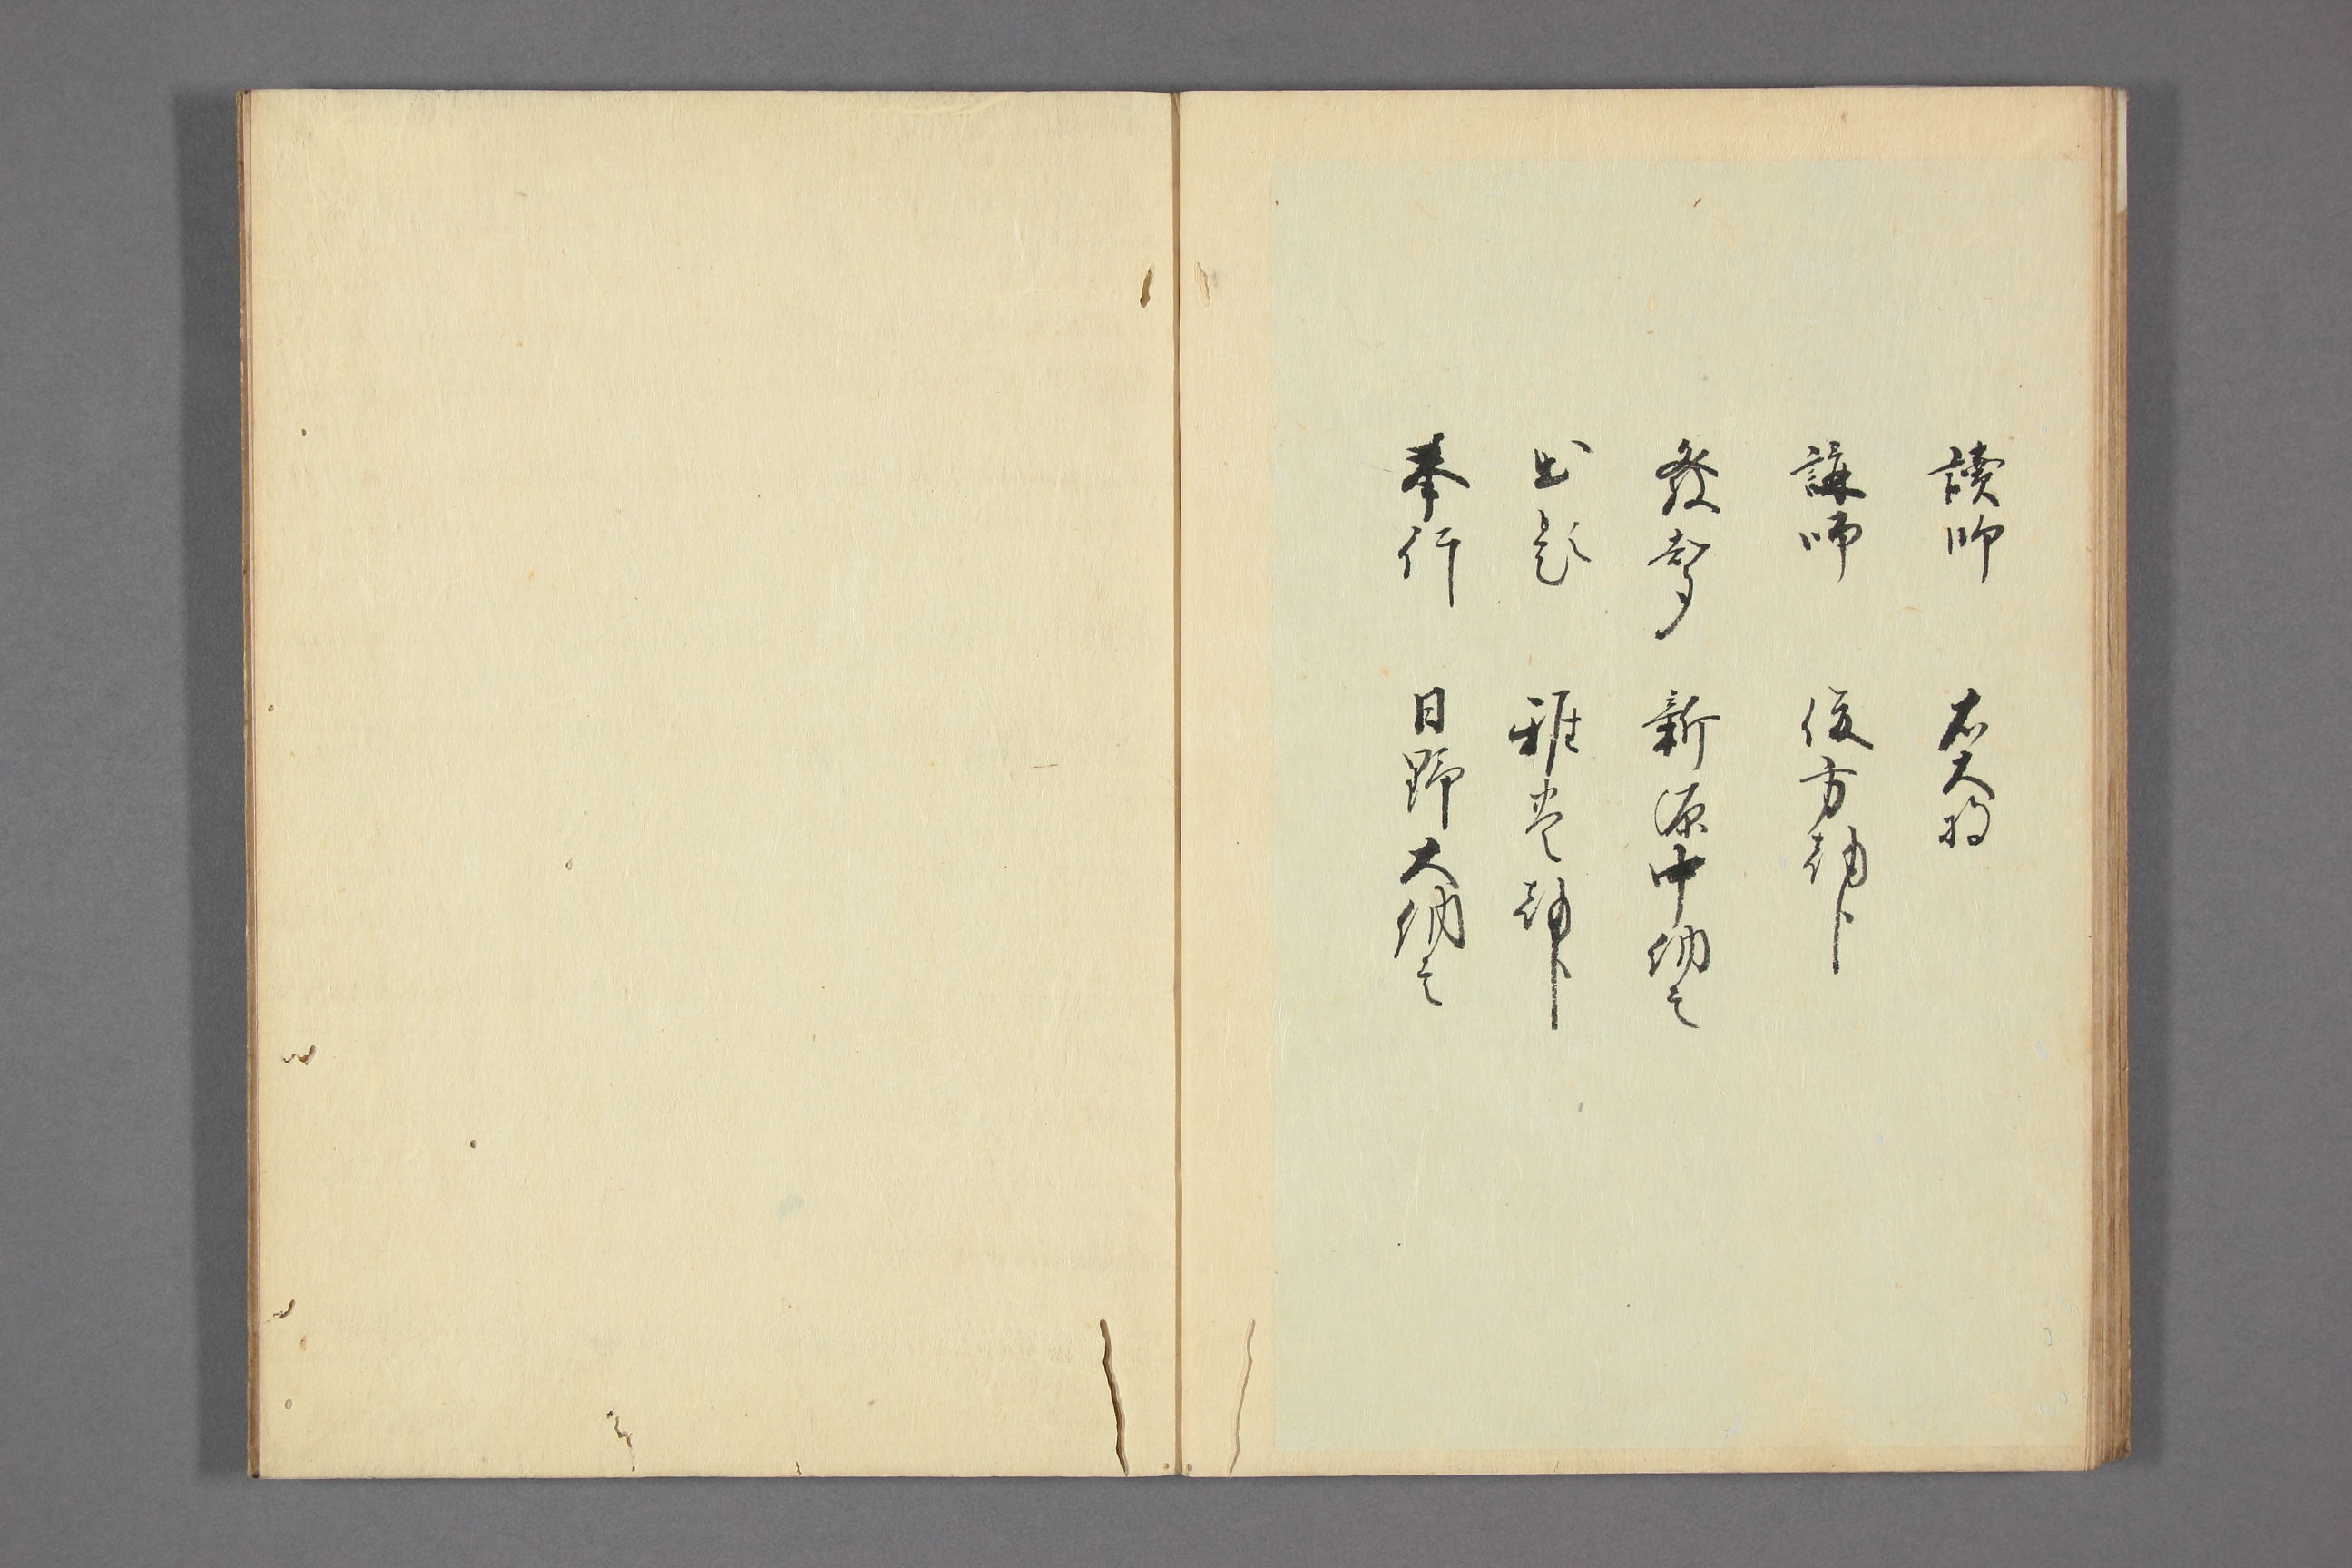 讀師 右大将
講師 俊方朝臣
發聲 新源中納言
出題 雅世朝臣
奉行 日野大納言